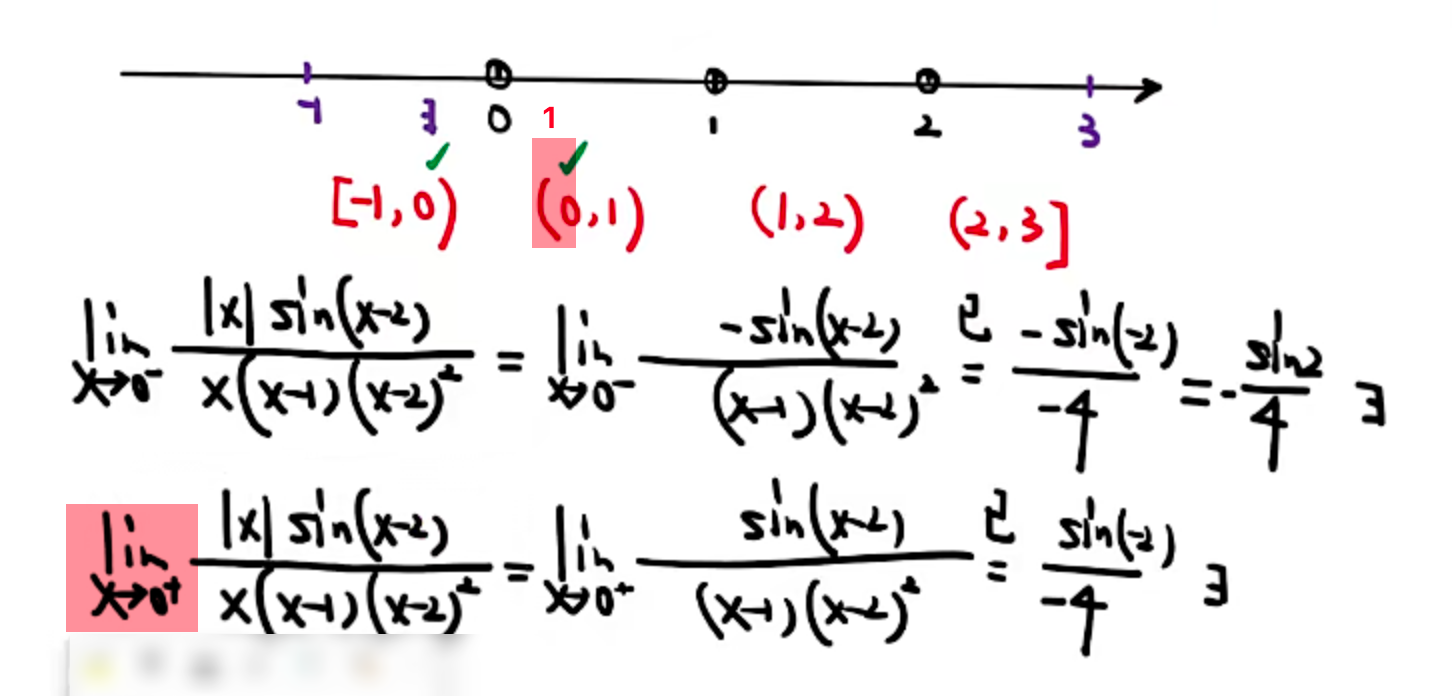 -1 ∃ 0 1 1 2 3
✓ ✓
[-1,0) (0,1) (1,2) (2,3]
lim x→0⁻ |x| sin(x-2) / x(x-1)(x-2)² = lim x→0⁻ -sin(x-2) / (x-1)(x-2)² 已= -sin(-2) / -4 = - sin2 / 4 ∃
lim x→0⁺ |x| sin(x-2) / x(x-1)(x-2)² = lim x→0⁺ sin(x-2) / (x-1)(x-2)² 已= sin(-2) / -4 ∃